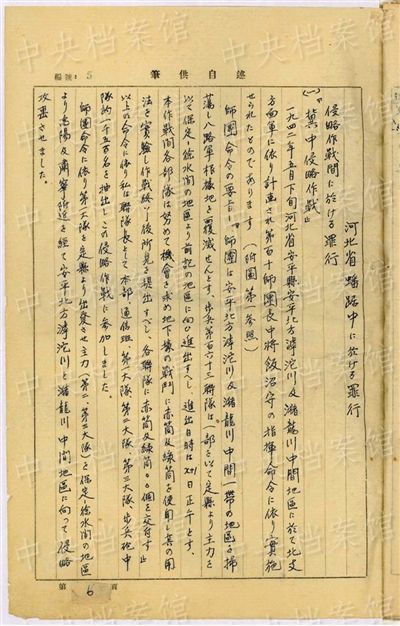 編號：5
述自供筆
河北省蟠踞中に於ける罪行
侵略作戰間に於ける罪行
(一)「冀中侵略作戰」
一九四二年五月下旬河北省安平縣安平北方滹沱川及瀦龍川中間地區に於て北支
方面軍に依り計画され第百十師團長中将飯沼守の指揮命令に依り實施
せられたものであります（附圖第一参照）
師團命令の要旨－「師團は安平北方滹沱川及瀦龍川中間一帯の地區を掃
蕩し八路軍根據地を覆滅せんとす、歩兵第百六十三聯隊は、一部を以て定縣より主力を
以て保定、徐水間の地區より前記の地區に向ひ進出すべし、進出日時は 日正午とす、
本作戰間各部隊は努めて機會を求め地下壕の戰鬪に赤筒及緑筒を使用し其の用
法を實驗し作戰終了後所見を提出すべし、各聯隊に赤筒及緑筒〇〇個を交付す」
以上の命令に依り私は聯隊長として本部、通信班、第一大隊、第二大隊、第三大隊、歩兵砲中
隊約一千五百名を抽出しこの侵略作戰に参加しました。
師團命令に依り第一大隊を定縣より出發させ主力（第二、第三大隊）を保定、徐水間の地區
より高陽及肅寧附近を経て安平北方滹沱川と瀦龍川中間地區に向って侵略
攻撃させました。
第 6 頁
中央档案馆
中央档案馆
中央档案馆